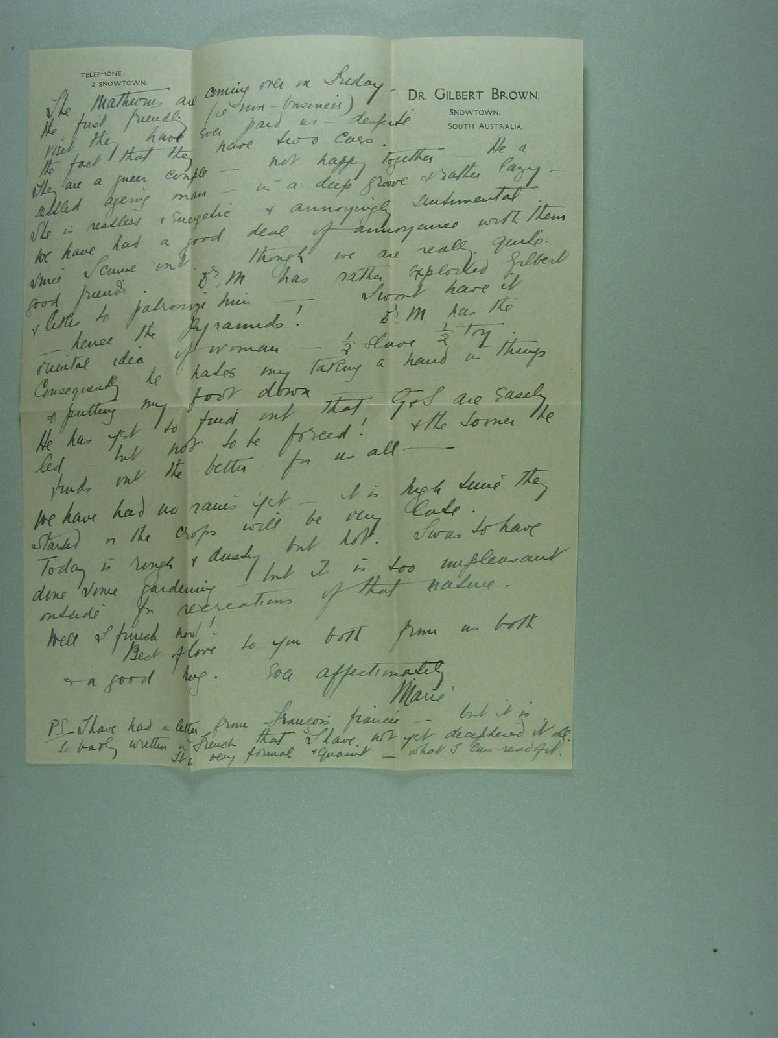 TELEPHONE:
2 SNOWTOWN.
DR. GILBERT BROWN.
SNOWTOWN,
SOUTH AUSTRALIA
The Mathews are coming over on Friday -
the first friendly (ie non-business)
visit they have ever paid us - despite
the fact that they have two cars.
They are a queer couple - not happy together - He a
settled ageing man - in a deep groove & rather lazy -
She is restless & energetic & annoyingly sentimental
We have had a good deal of annoyance with them
since I came out though we are really quite
good friends. Dr. M has rather exploited Gilbert
& likes to patronise him - I wont have it
- hence the pyramids! Dr. M has the
oriental idea of woman - ½ slave ½ toy.
Consequently he hates my taking a hand in things
& putting my foot down
He has yet to find out that G & I are easily
led - but not to be forced! & the sooner he
finds out the better for us all -
We have had no rains yet - it is high time they
started or the crops will be very late.
Today is rough & dusty but hot. I was to have
done some gardening - but it is too unpleasant
outside for recreations of that nature.
Well I finish now!
Best of love to you both from us both
& a good hug. Ever affectionately
Marie
PS - I have had a letter from François fiancée - but it is
so badly written in French that I have not yet deciphered it all.
It is very formal & quaint - what I can read of it.